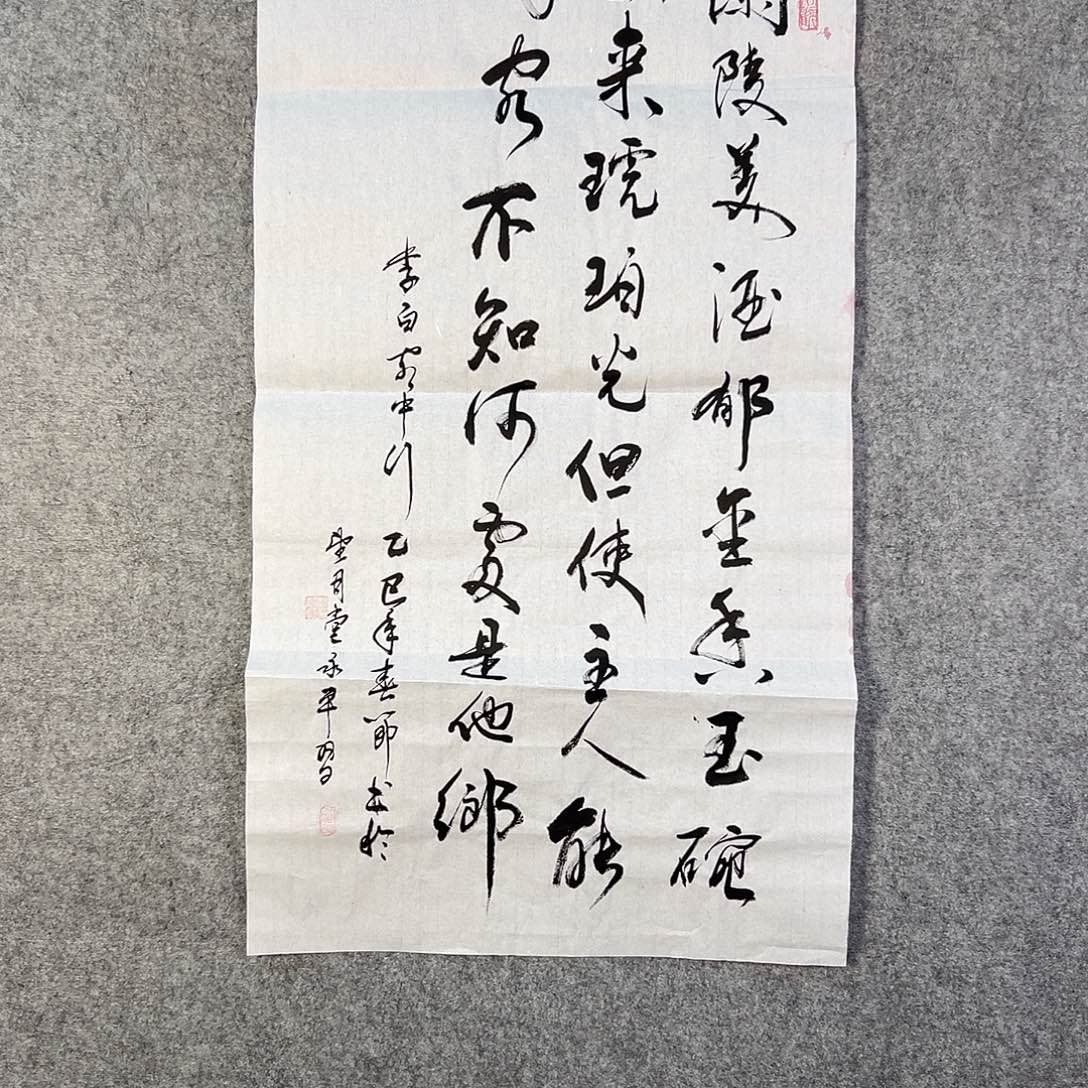 蘭陵美酒郁金香玉碗
来琥珀光但使主人能
客不知何處是他鄉
李白客中行
乙巳年春節书於
望月堂永平習